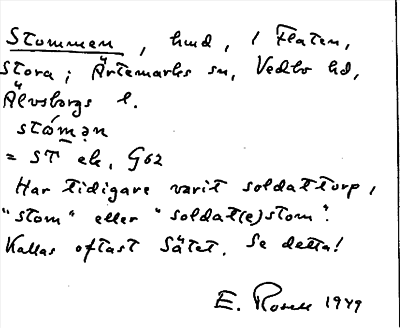 Stommen, hmd, i Flaten,
Stora; Ärtemarks sn, Vedbo hd,
Älvsborgs l.
stómən
= ST ek. G62
Har tidigare varit soldattorp,
"stom" eller "soldat(e)stom".
Kallas oftast Sätet. Se detta!
E. Rosell 1949